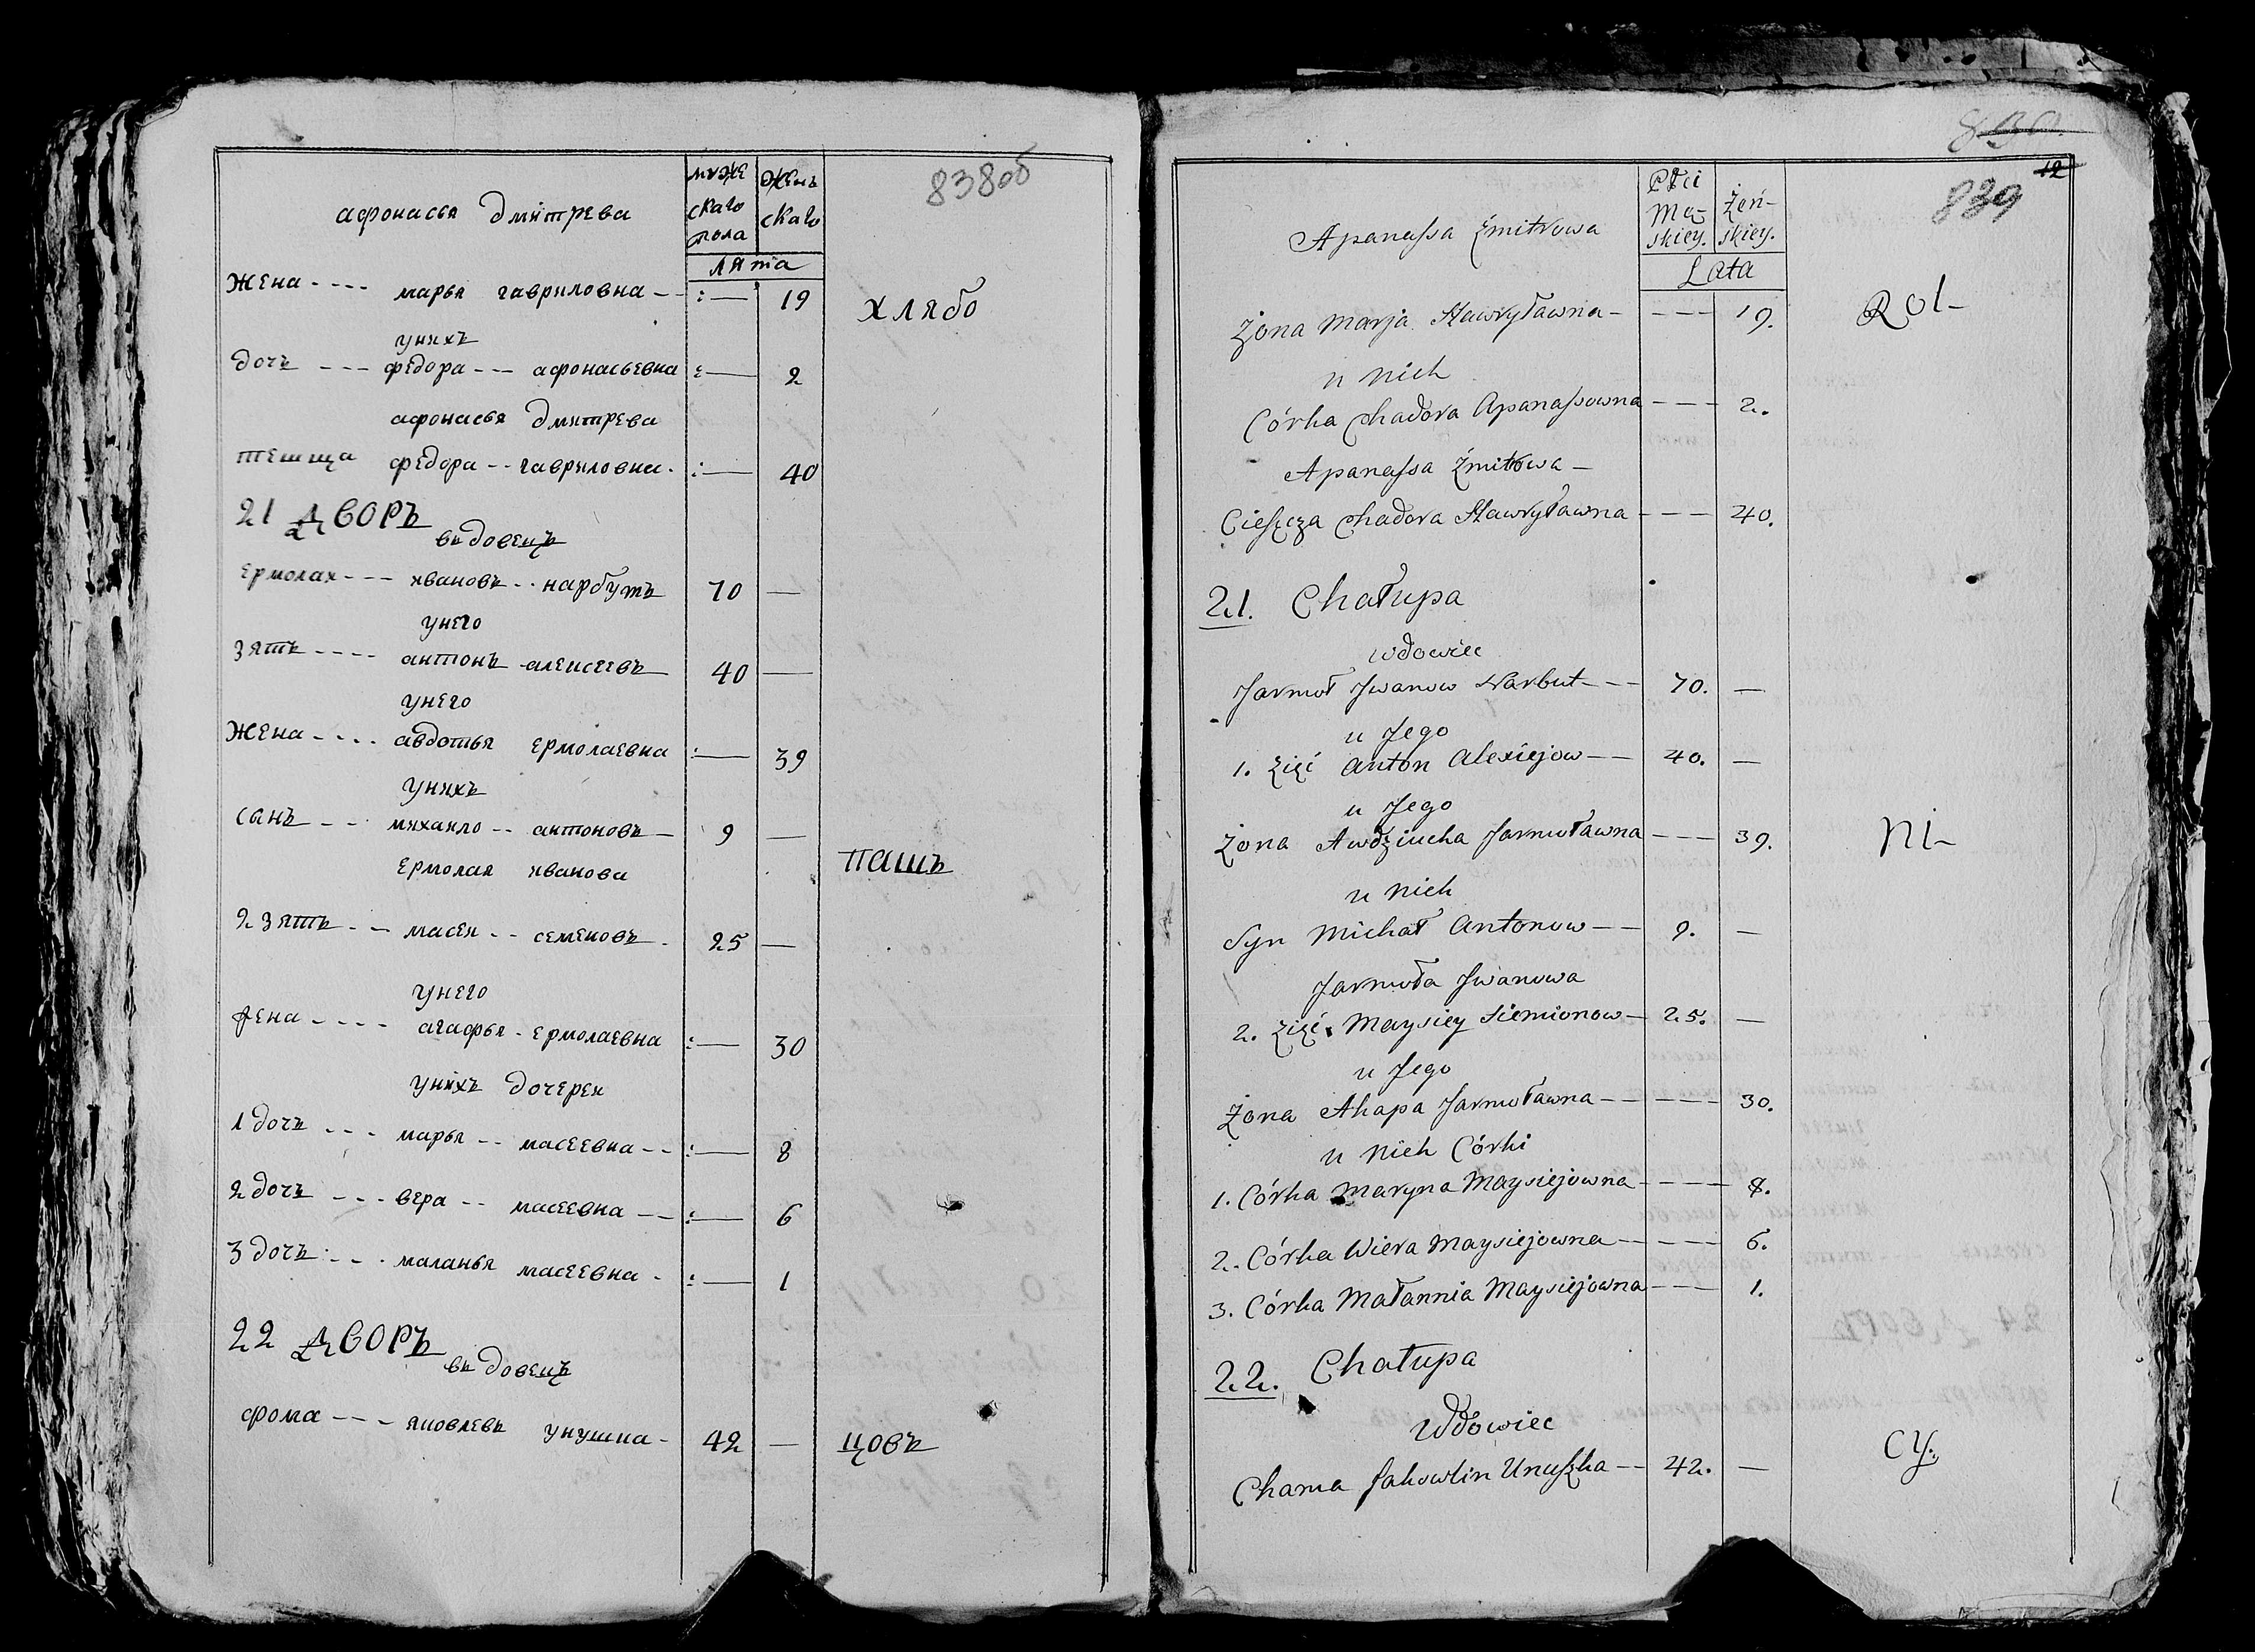 838об
муже
скаго
пола
жень
скаго
лята
афонасья дмитрева
жена ---- марья гавриловна -- :— 19
хлябо
унихъ
дочъ --- федора --- афонасьевна :— 2
афонасья дмитрева
тешща федора -- гавриловна. :— 40
21 дворъ
вьдовецъ
ермолаи --- ивановъ -- нарбутъ 70 —
унего
зять ---- антонъ алеисеевъ 40 —
унего
жена ---- авдотья ермолаевна :— 39
унихъ
сынъ --- михаило -- антоновъ — 9 —
пашъ
ермолая иванова
2 зять -- масеи -- семеновъ. 25 —
унего
жена ---- агафья - ермолаевна :— 30
унихъ дочереи
1 дочъ --- марья -- масеевна -- :— 8
2 дочъ --- вера -- масеевна -- :— 6
3 дочъ --- маланья масеевна - :— 1
22 дворъ
вьдовецъ
фома --- яиовлевъ унушиа - 42 —
цовъ
839
12
839
Płci
Mę-
skiey.
Żeń-
skiey.
Lata
Apanassa Zmitrowa
Żona Marja Hawryławna - --- 19.
Rol-
u nich
Córka Chadora Apanasowna --- 2.
Apanassa Zmitrowa —
Cieszcza Chadora Hawryławna --- 40.
21. Chałupa
wdowiec
Jarmoł Jwanow Narbut --- 70. —
u Jego
1. Zięć Anton Alexiejow -- 40. —
u Jego
Żona Awdziucha Jarmoławna --- 39.
Ni-
u nich
Syn Michał Antonow -- 9. —
Jarmoła Jwanowa
2. Zięć Maysiey Siemionow - 25. —
u Jego
Żona Ahapa Jarmoławna ----- 30.
u nich Córki
1. Córka Maryna Maysiejowna ---- 8.
2. Córka Wiera Maysiejowna ---- 6.
3. Córka Małannia Maysiejowna --- 1.
22. Chałupa
Wdowiec
Chama Jakowlin Unuszka -- 42. —
cy.